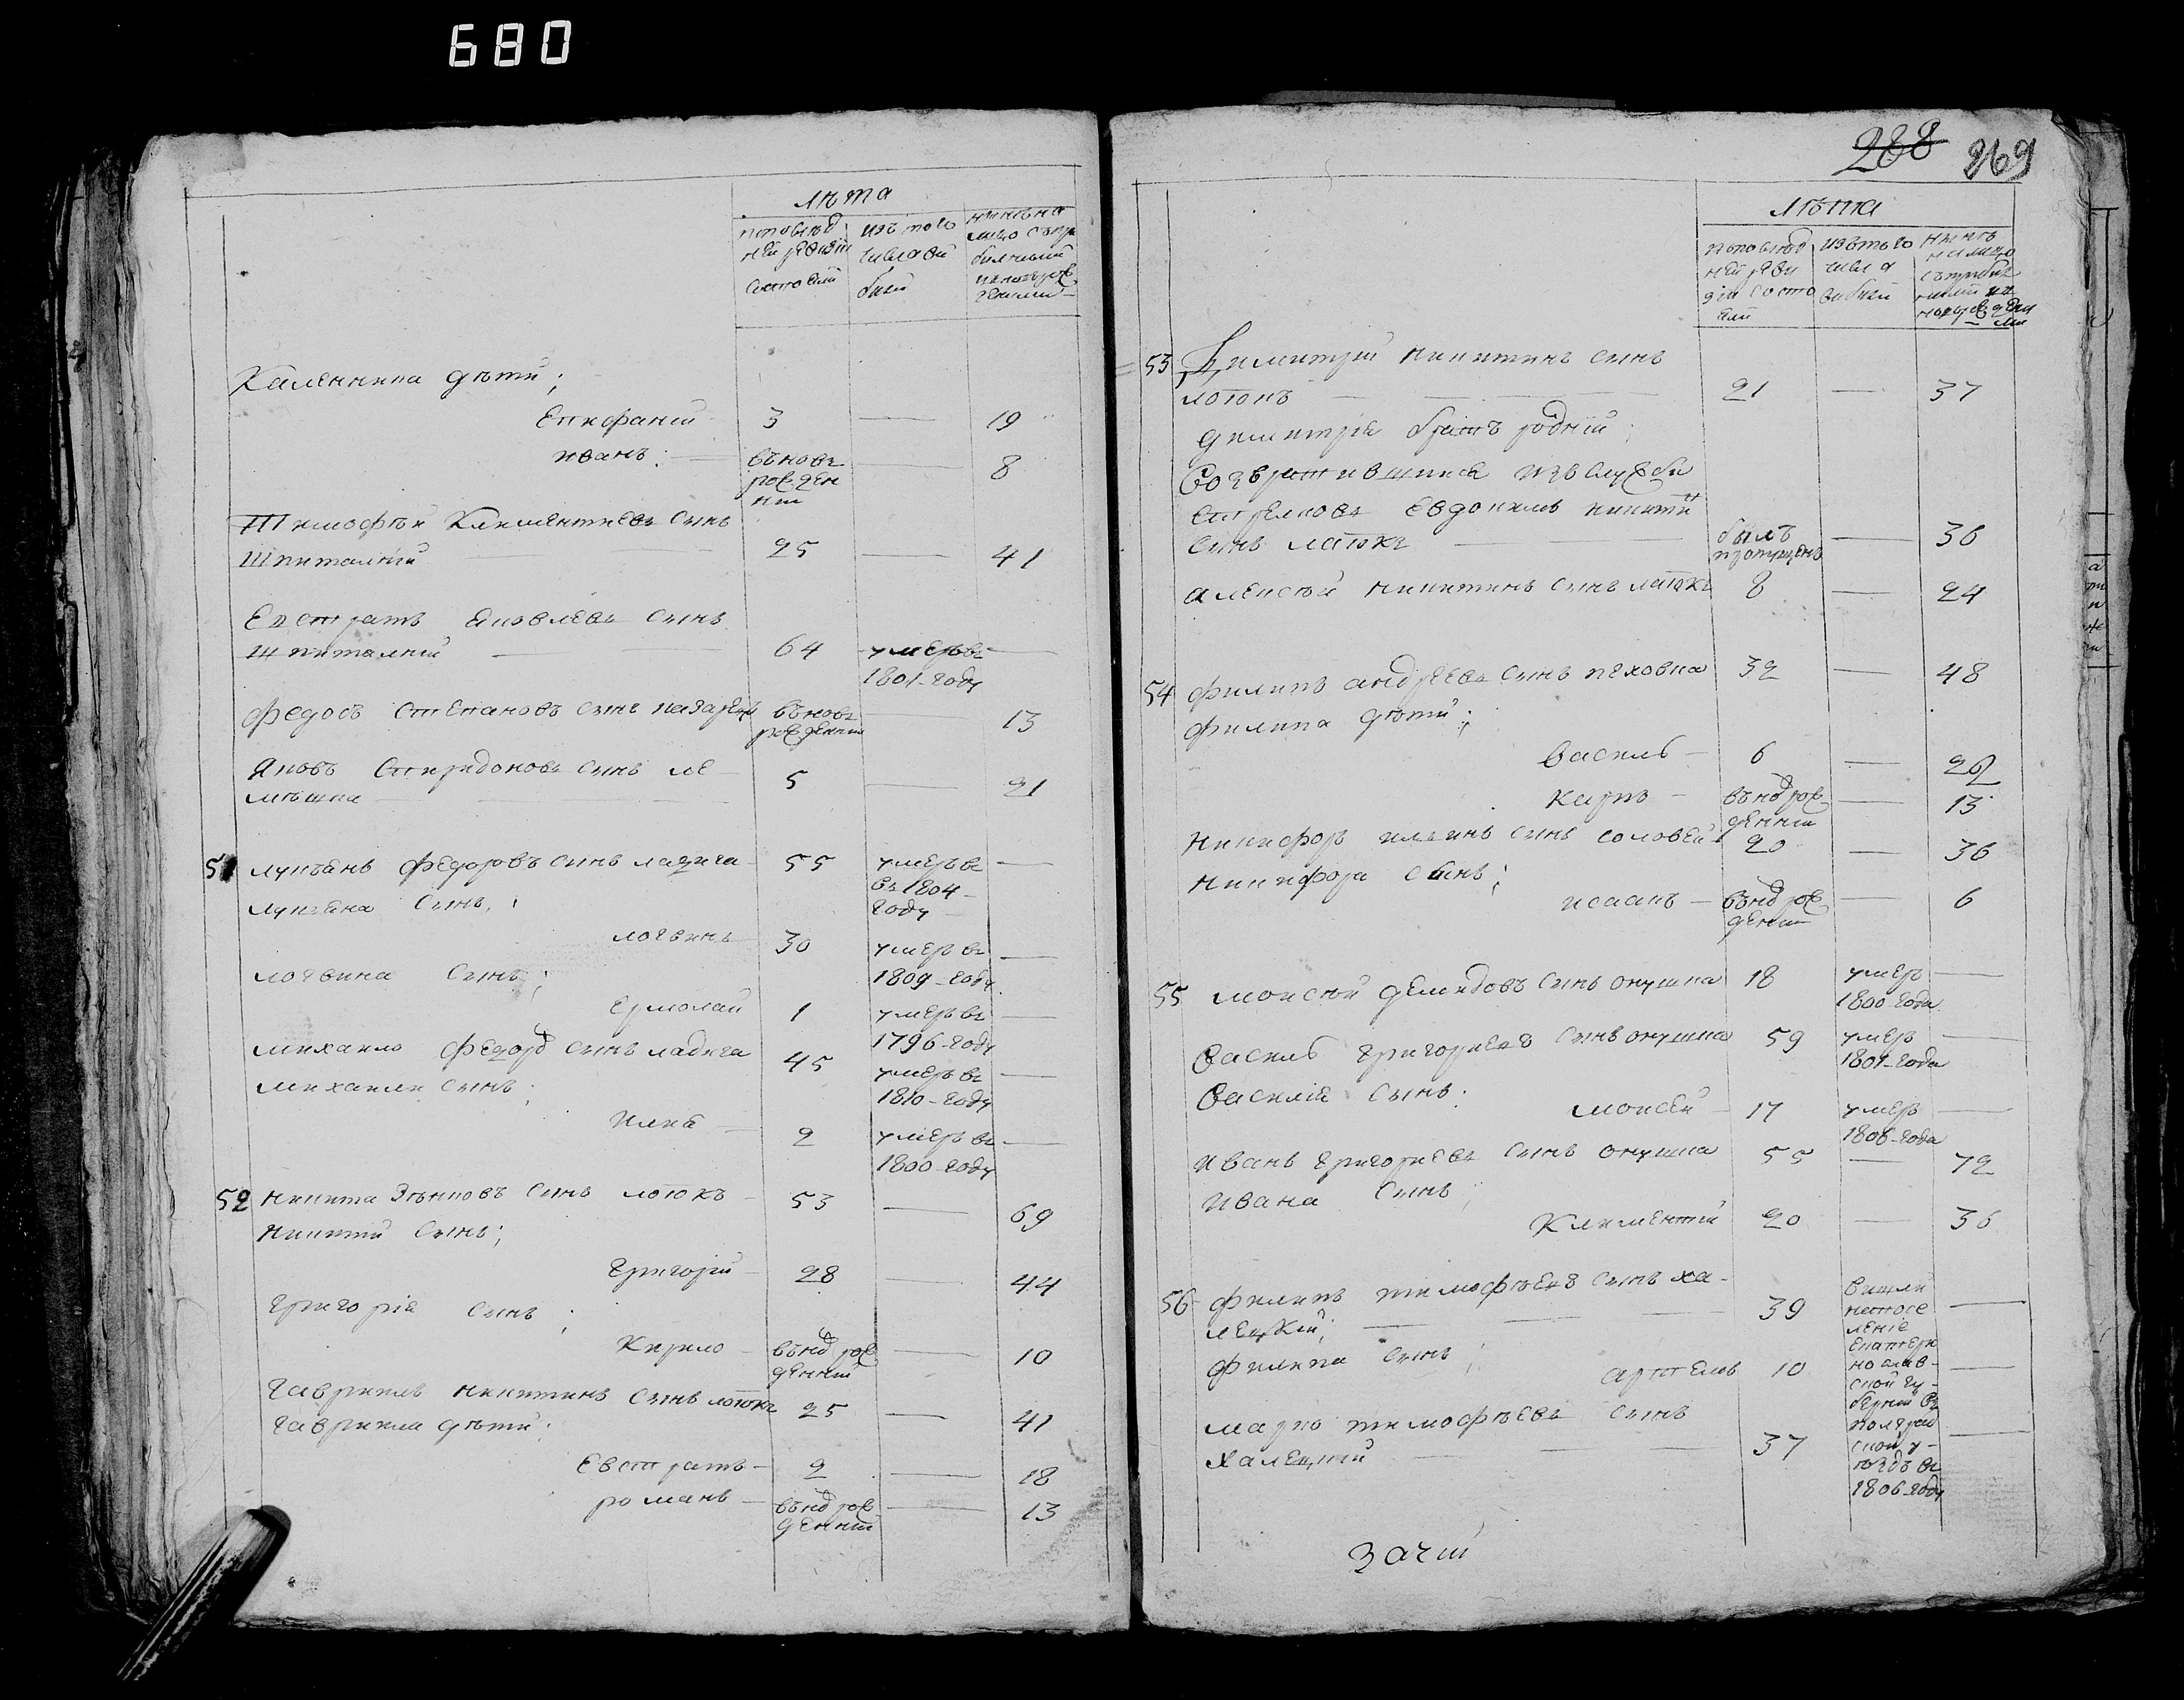 680
лѣта
Калєнника дѣти;
Епифаний 3 — 19
иванъ: въновъ рожденни — 8
Тимофѣй Климентиевъ сынъ
Шпиталній 25 — 41
Евстратъ Яковлевъ сынъ
Шпиталний 64 умеръ въ —
1801-году
Федосъ Степановъ сынъ въновъ рожденни — 13
Яковъ Спиридоновъ сынъ ле-
мѣшка 5 — 21
51 лукъянъ федоровъ сынъ ладига 55 умеръ въ —
въ 1804-
году
лукъяна сынъ;
логвинъ 30 умеръ въ —
1809-году
логвина сынъ;
Ермолай 1 умеръ въ —
1796-году
михайло федоров сынъ ладига 45 умеръ въ —
1810-году
михаила сынъ;
Илья 2 умеръ въ —
1800-году
52 никита сынъ лотокъ 53 — 69
никити сынъ;
григорій 28 — 44
григорія сынъ;
Кирило вънов рожденний — 10
Гаврилъ никитинъ сынъ лотокъ 25 — 41
Гаврила дѣти;
Евстратъ 2 — 18
романъ вънов рожденний — 13
288 269
лѣта
53 Димитрий никитинъ сынъ
лотокъ 21 — 37
димитрія братъ родній;
Возвратившийся изъ службы
Евдокимъ никити
синъ лотокъ былъ пропущенъ — 36
алексѣй никитинъ сынъ лотокъ 8 — 24
54 филипъ андреевъ сынъ пеховка 32 — 48
филипа дѣти;
Василь 6 — 22
Карпъ вънов рожденни — 13
никифоръ ильинъ сынъ соловей 20 — 36
никифора сынъ;
исаакъ вънов рожденни — 6
55 моисѣй демидовъ сынъ онушка 18 умеръ —
1800-года
Василь григориевъ сынъ онушка 59 умеръ —
1801-года
Василія сынъ.
моисей 17 умеръ —
1806-года
иванъ григориевъ сынъ онушка 55 — 72
ивана сынъ;
Климентий 20 — 36
56 филипъ тимофѣевъ сынъ ха-
лецкій; 39 вишли
на посе
леніе
Екатери
нослав-
ской гу-
берни въ
ской у-
ѣздъ въ
1806-году
филипа сынъ;
артемъ 10 —
марко тимофѣевъ сынъ
халецкий 37 —